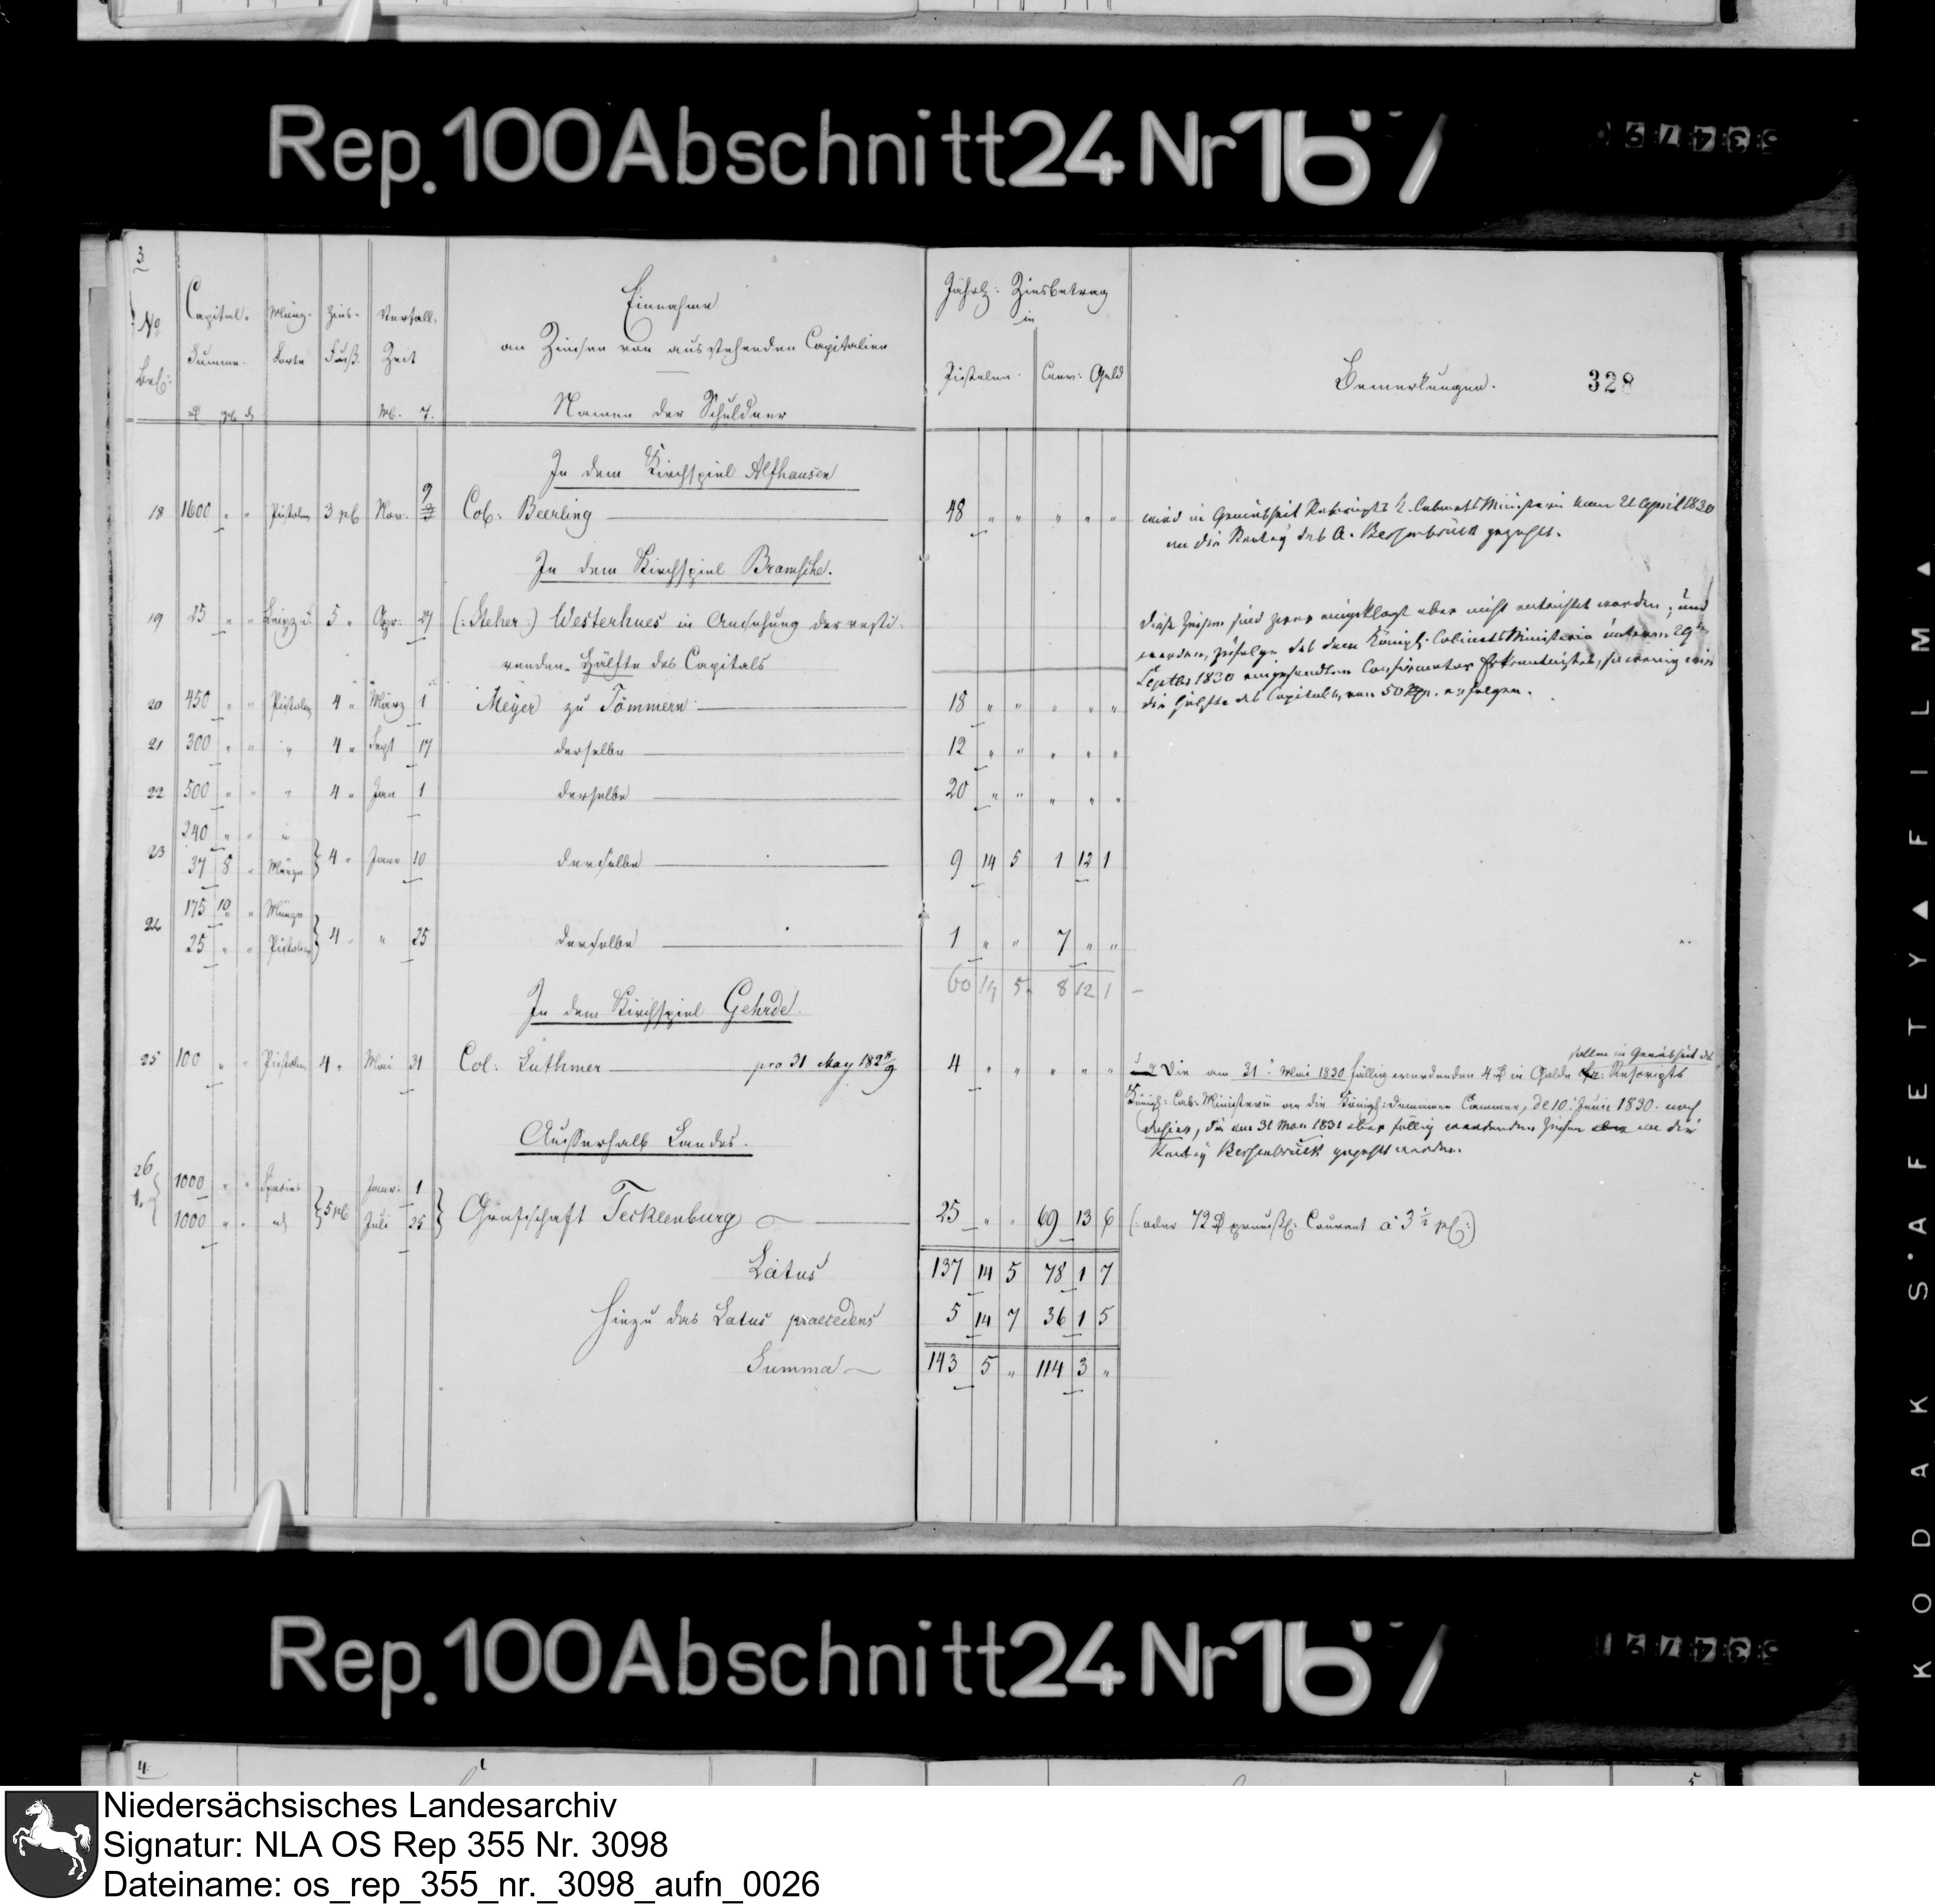 Rep. 100 Abschnitt 24 Nr 167
3
No
Capital- Münz- Zins- Verfall-
Einnahme
Jährl: Zinsbetrag
in
Summe. Sorte Fuß. Zeit
an Zinsen von ausstehenden Capitalien
Pistolen. Conv: Geld
Bemerkungen. 328
M. T.
Namen der Schuldner
In dem Kirchspiel Alfhausen
18 1600 " " Pistolen 3 pC Nov: 9 Col: Beerling 48 " " " " "
wird in Gemäßheit Rescripts K. Cabinets Ministerii vom 21 April 1830
an die Rentey des A. Bersenbrück gezahlt.
In dem Kirchspiel Bramsche.
19 25 " " 5 " Apr: 27 (:Steher:) Westerhues in Ansehung der resti-
renden Hälfte des Capitals
Diese Zinsen sind zwar eingeklagt aber nicht entrichtet worden, und
werden, zufolge des dem Königl. Cabinets Ministerio unterm 29ten
Septbr 1830 eingesandten Erkenntnisses, so wenig wie
die Hälfte des Capitals, von 50 erfolgen.
20 450 " " Pistolen 4 " März 1 Meyer zu Tömmern 18 " " " " "
21 300 " " " 4 " Sept 17 derselbe 12 " " " " "
22 500 " " " 4 " Jan 1 derselbe 20 " " " " "
240 " " "
23 4 " Janr 10 derselbe 9 14 5 1 12 1
37 8 " Münze
175 10 " Münze
24 4 " " 25 derselbe 1 " " 7 " "
25 " " Pistolen
60 14 5 8 12 1
In dem Kirchspiel Gehrde
25 100 " " Pistolen 4 " Mai 31 Col: Luthmer pro 31 May 1828/9 4 " " " " "
sollen in Gemäßheit des
Die am 31. Mai 1830 fällig werdenden 4 in Golde Rescripts
Königl: Cab: Ministerii an die Königl: Domainen Cammer, de 10. Junii 1830. noch
, die am 31 May 1831 aber fällig werdenden Zinsen an die
Rentey Bersenbrück gezahlt werden.
Ausserhalb Landes.
26 1000 " " Janr: 1
1. 5 pC Grafschaft Tecklenburg 25 " " 69 13 6 (:oder 72 preußl: Courant à 3 1/2 pC:)
1000 " " Juli 25
Latus 137 14 5 78 1 7
Hinzu das Latus praecedens 5 14 7 36 1 5
Summa 143 5 " 114 3 "
Rep. 100 Abschnitt 24 Nr 167
4.
5
KODAK SAFETY FILM
Niedersächsisches Landesarchiv
Signatur: NLA OS Rep 355 Nr. 3098
Dateiname: os_rep_355_nr._3098_aufn_0026